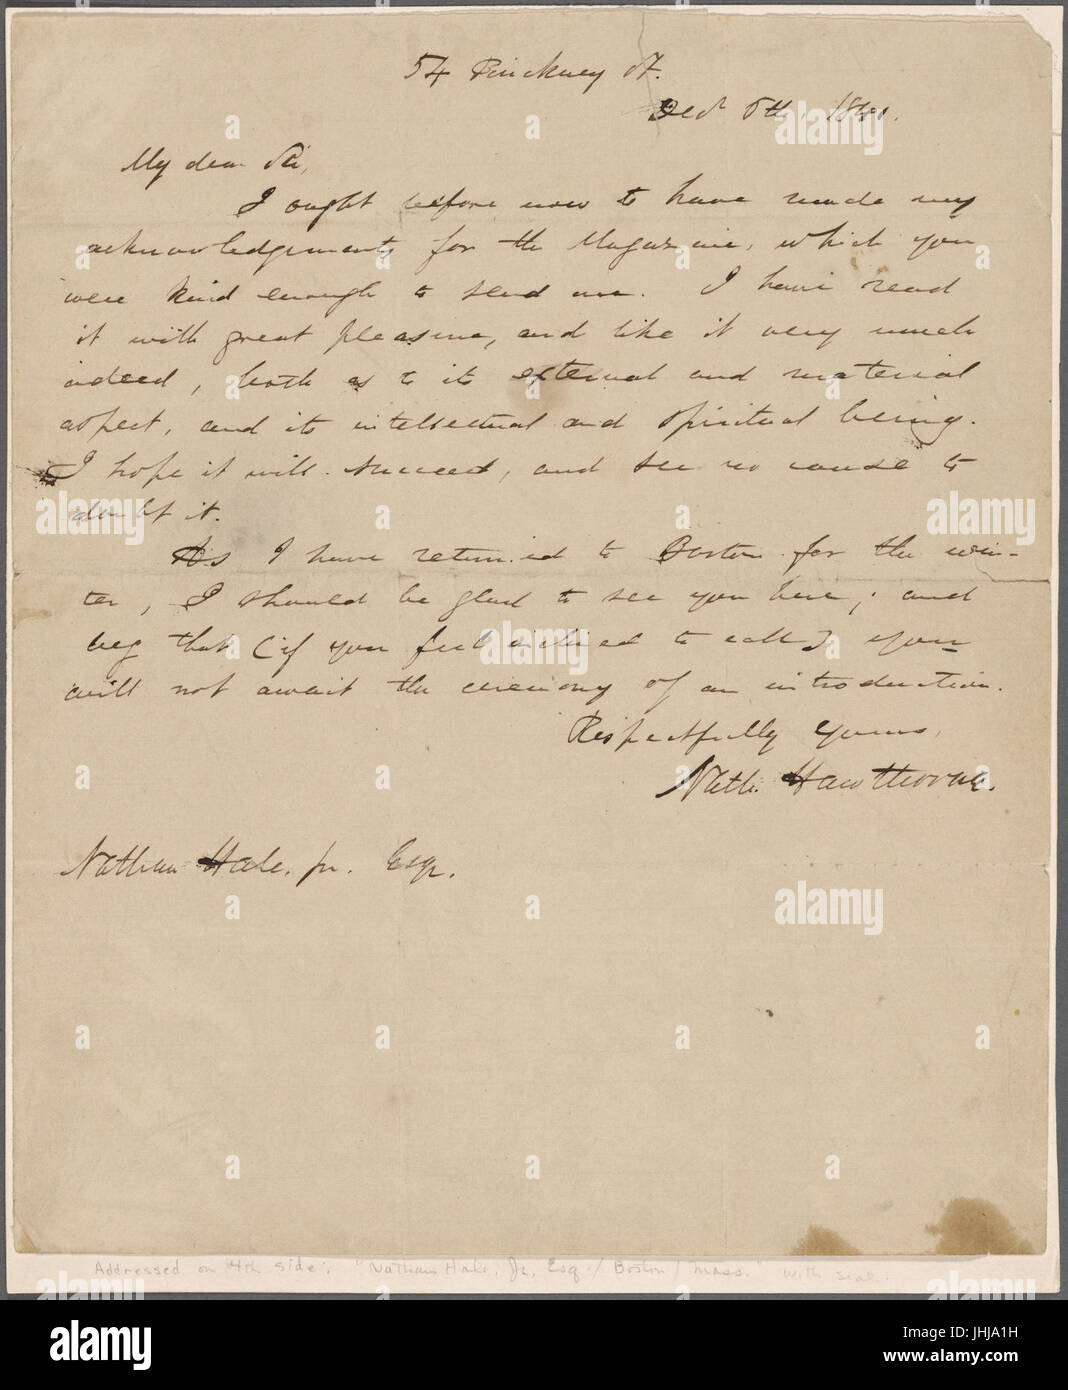 54 Pinckney St.
Decr 6th, 1841.
My dear Sir,
I ought before now to have made my
acknowledgements for the Magazine, which you
were kind enough to send me. I have read
it with great pleasure, and like it very much
indeed, both as to its external and material
aspect, and its intellectual and spiritual being.
I hope it will succeed, and see no cause to
doubt it.
As I have returned to Boston for the win-
ter, I should be glad to see you here; and
beg that (if you feel inclined to call) you
will not await the ceremony of an introduction.
Respectfully Yours,
Nath. Hawthorne.
Nathan Hale, jr. Esqr.
Addressed on 4th side: "Nathan Hale, Jr. Esq / Boston / Mass." with seal.
alamy
a
alamy stock photo
JHJA1H
www.alamy.com